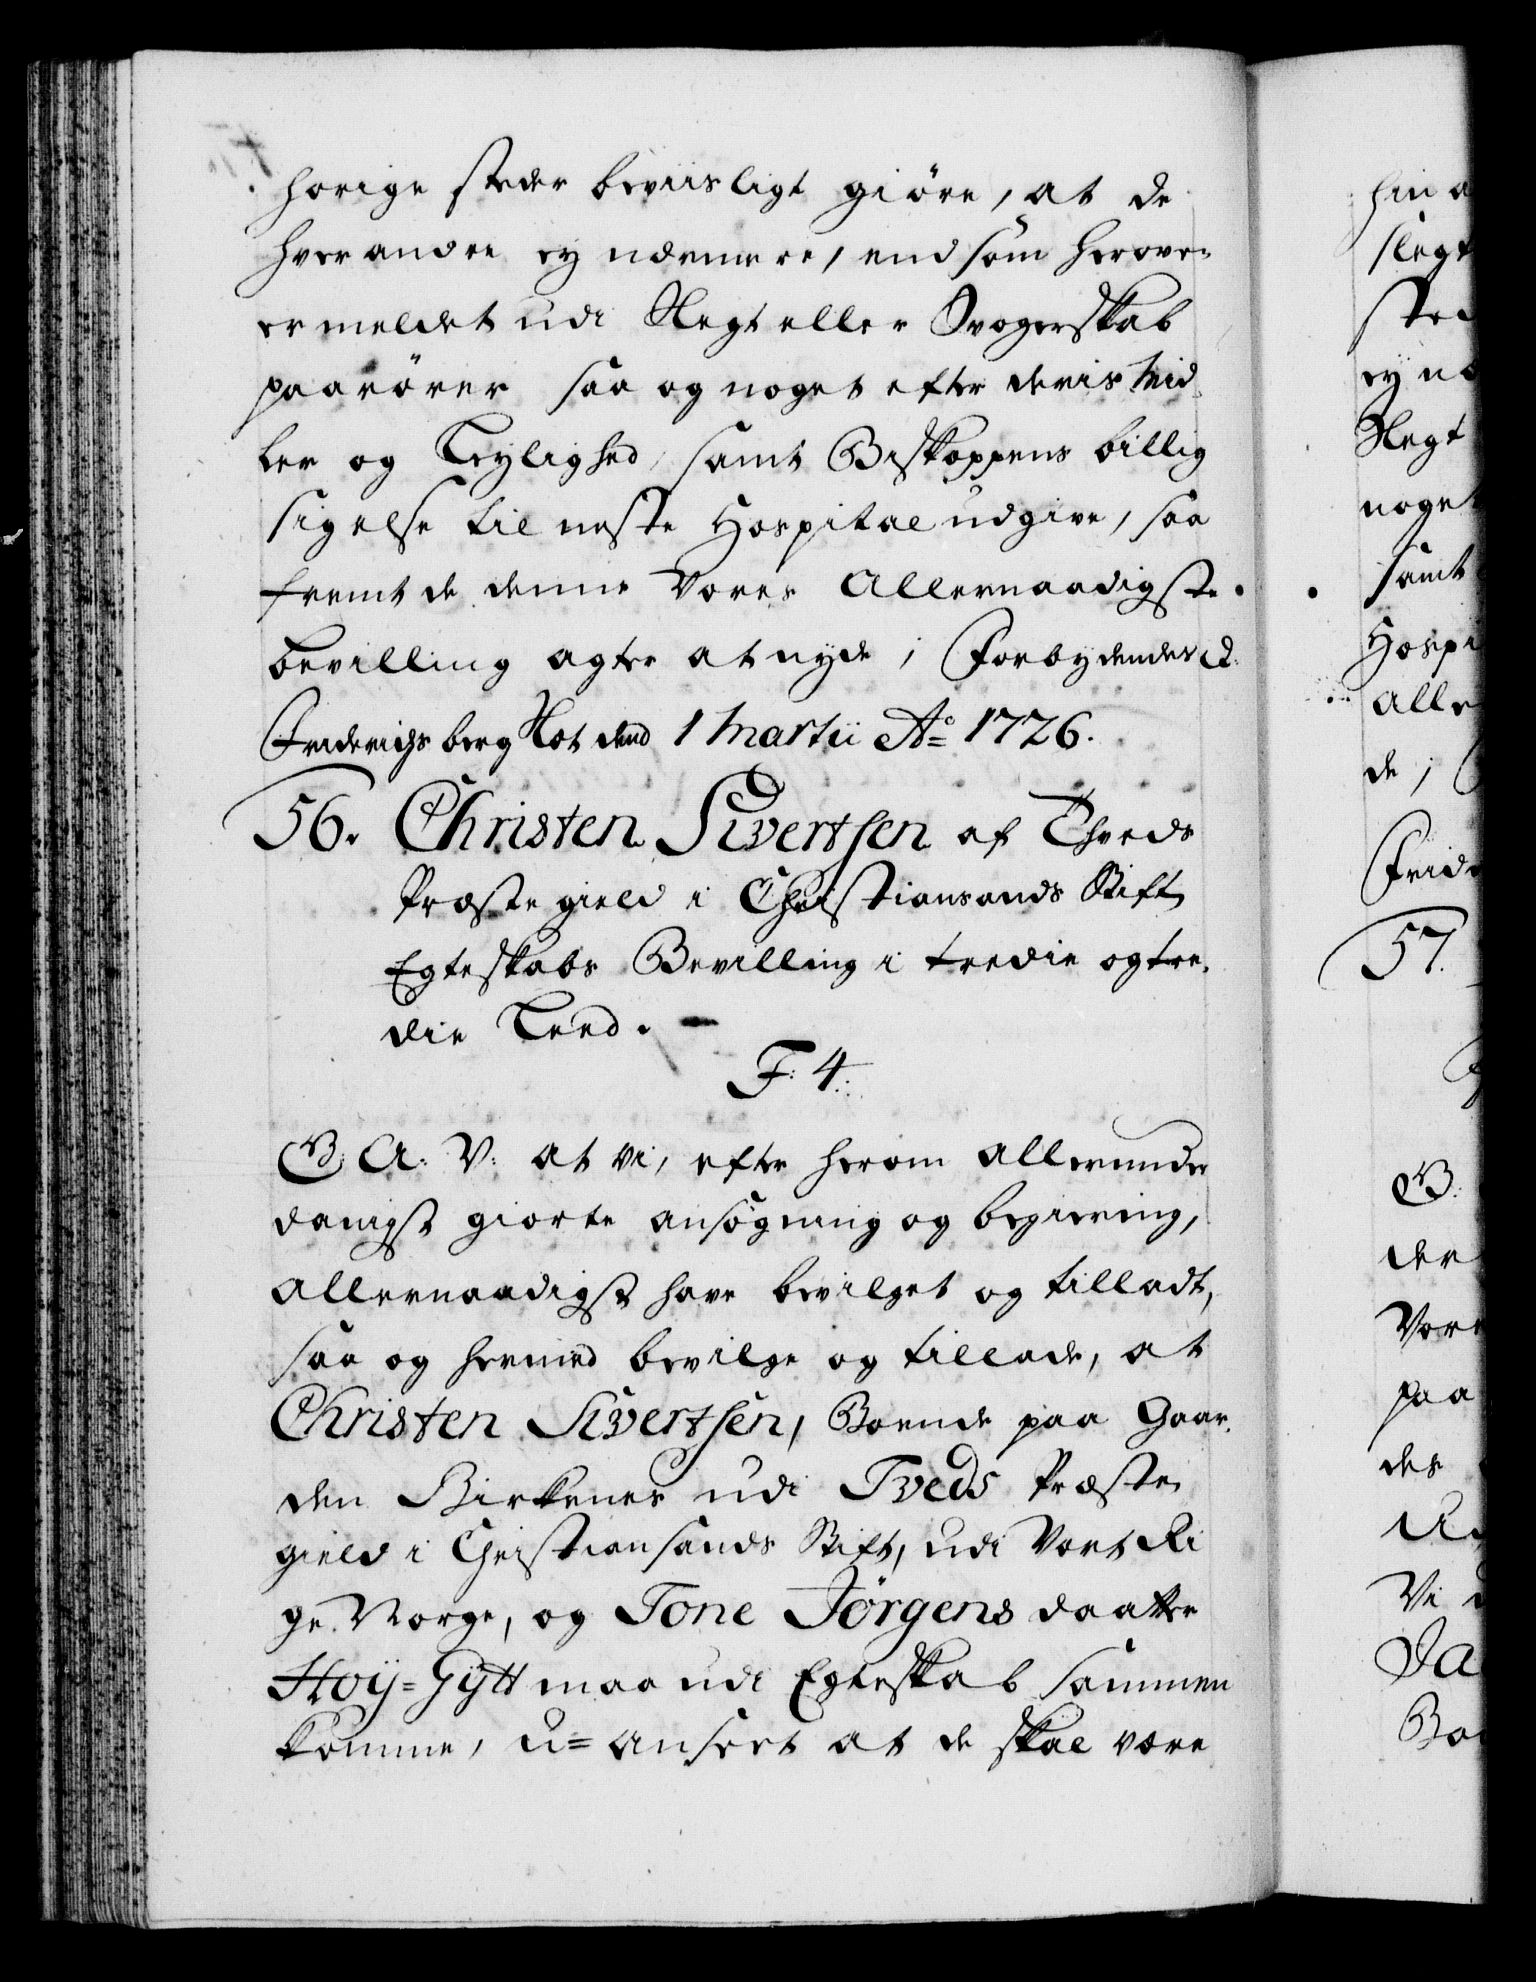 horige steder beviisligt giöre, at de
hver andre ey nærmere, end som herove-
er meldet udi Slegt eller Svogerskab
paarörer saa og noget efter deris Mid-
ler og Leylighed, samt Biskoppens billig
sigelse til neste Hospital udgive, saa
fremt de denne Vores Allernaadigste
bevilling agter at nyde; Forbydendes &.
Friderichsberg Slot dend 1 Martii Ao 1726.
56. Christen Sivertsen af Thveds
Præstegield i Christiansands Stift
Egteskabs Bevilling i tredie og tre-
die Leed.
F: 4.
G. A. V: at vi, efter herom allerunder
danigst giorte ansögning og begiering,
allernaadigst have bevilget og tilladt,
saa og hermed bevilge og tillade, at
Christen Sivertsen, Boende paa Gaar-
den Birkenes udi Tveds Præste
gield i Christiansands Stift, udi Vort Ri
ge Norge, og Tone Jörgens daatter
Hoÿ=Gÿtt maa udi Egteskab sammen
komme, u=anseet at de skal være
hin a
slegt
sted
ey næ
Slegt
noget
samt
Hospi
Alle
de; 
Frid
57.
G.
der
Vor
paa
des
Vi
Ja
Bo